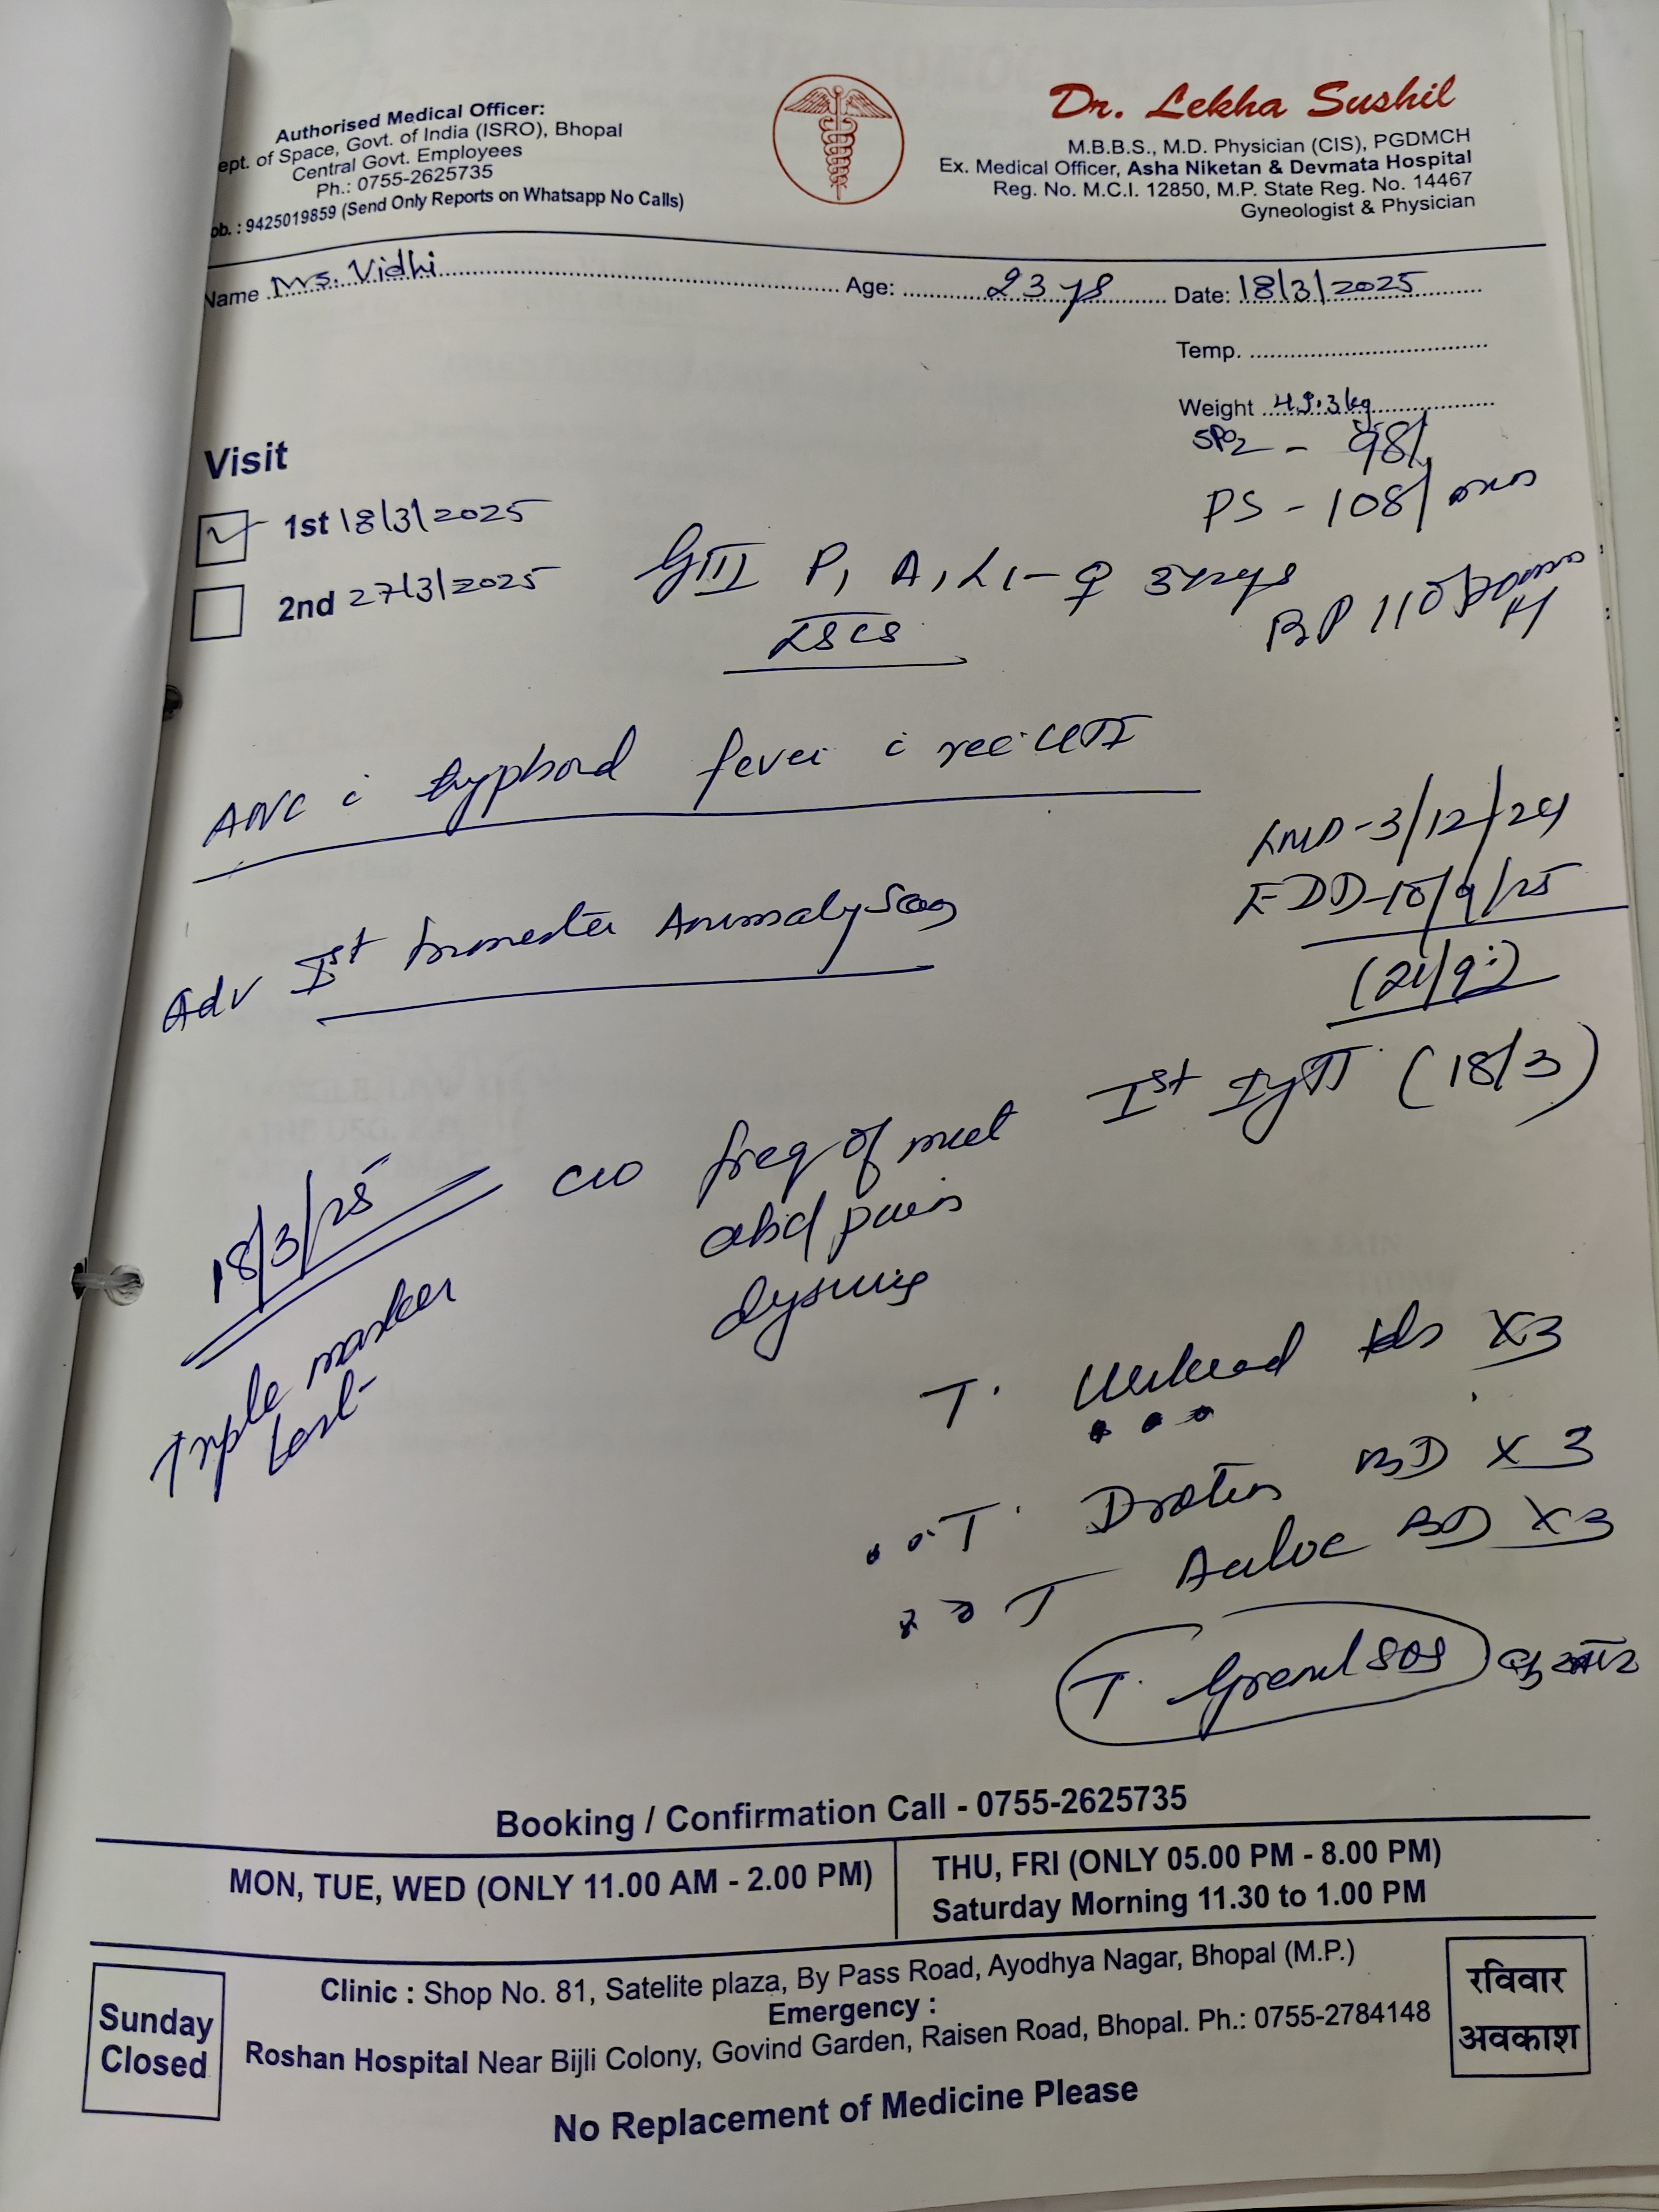 Authorised Medical Officer:
ept. of Space, Govt. of India (ISRO), Bhopal
Central Govt. Employees
Ph.: 0755-2625735
ob. : 9425019859 (Send Only Reports on Whatsapp No Calls)
Dr. Lekha Sushil
M.B.B.S., M.D. Physician (CIS), PGDMCH
Ex. Medical Officer, Asha Niketan & Devmata Hospital
Reg. No. M.C.I. 12850, M.P. State Reg. No. 14467
Gyneologist & Physician
Name Mrs. Vidhi Age: 23 ys Date: 18/3/2025
Temp.
Weight 49.3kg
SPO2 - 98%
PS - 108/
BP 110/70
Visit
1st 18/3/2025
2nd 27/3/2025
GIII P1 A1 L1 - ♀ 3
LSCS
ANC c typhoid fever c rec UTI
LMD - 3/12/24
EDD - 10/9/25
Adv Ist trimester Anomaly
Ist (18/3)
18/3/25
c/o freq of mict
abd pain
dysuria
Triple marker
test
T. tds X3
T. Drotin BD X 3
T BD X3
T. SOS
Booking / Confirmation Call - 0755-2625735
MON, TUE, WED (ONLY 11.00 AM - 2.00 PM)
THU, FRI (ONLY 05.00 PM - 8.00 PM)
Saturday Morning 11.30 to 1.00 PM
Sunday
Closed
Clinic : Shop No. 81, Satelite plaza, By Pass Road, Ayodhya Nagar, Bhopal (M.P.)
Emergency :
Roshan Hospital Near Bijli Colony, Govind Garden, Raisen Road, Bhopal. Ph.: 0755-2784148
रविवार
अवकाश
No Replacement of Medicine Please